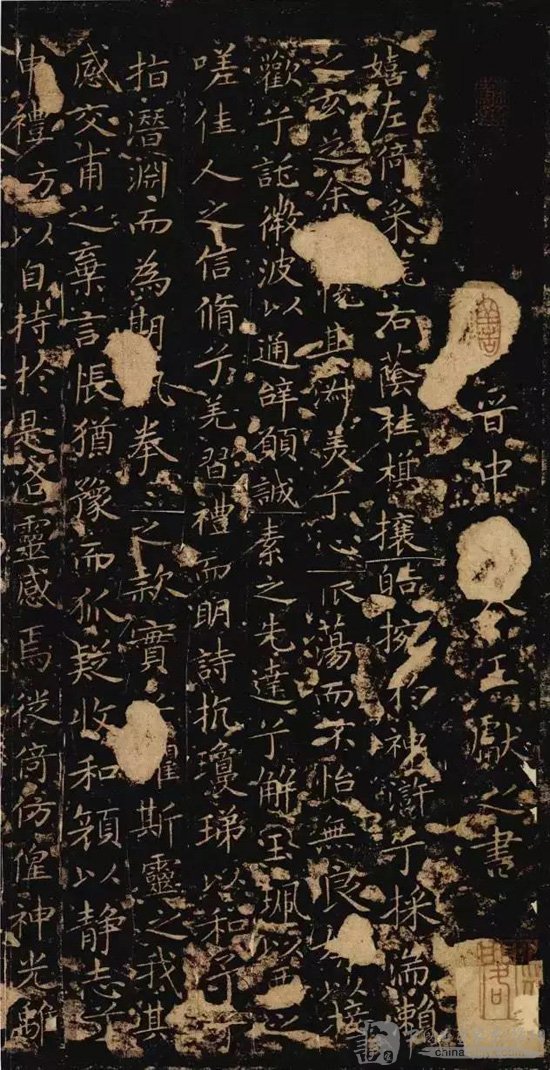 晋中令王獻之書
嬉左倚采旄右蔭桂棋攘皓捥於神滸兮採湍瀨
之玄芝余悅其淑美兮心振蕩而不怡無良以接
歡兮託微波以通辤願誠素之先達兮解玉珮以要之
嗟佳人之信脩兮羌習禮而明詩抗瓊珶以和予兮
指潛淵而為期執拳之款實兮懼斯靈之我欺
感交甫之棄言悵猶豫而狐疑收和顏以靜志兮
申禮防以自持於是洛靈感焉徙倚仿偟神光離